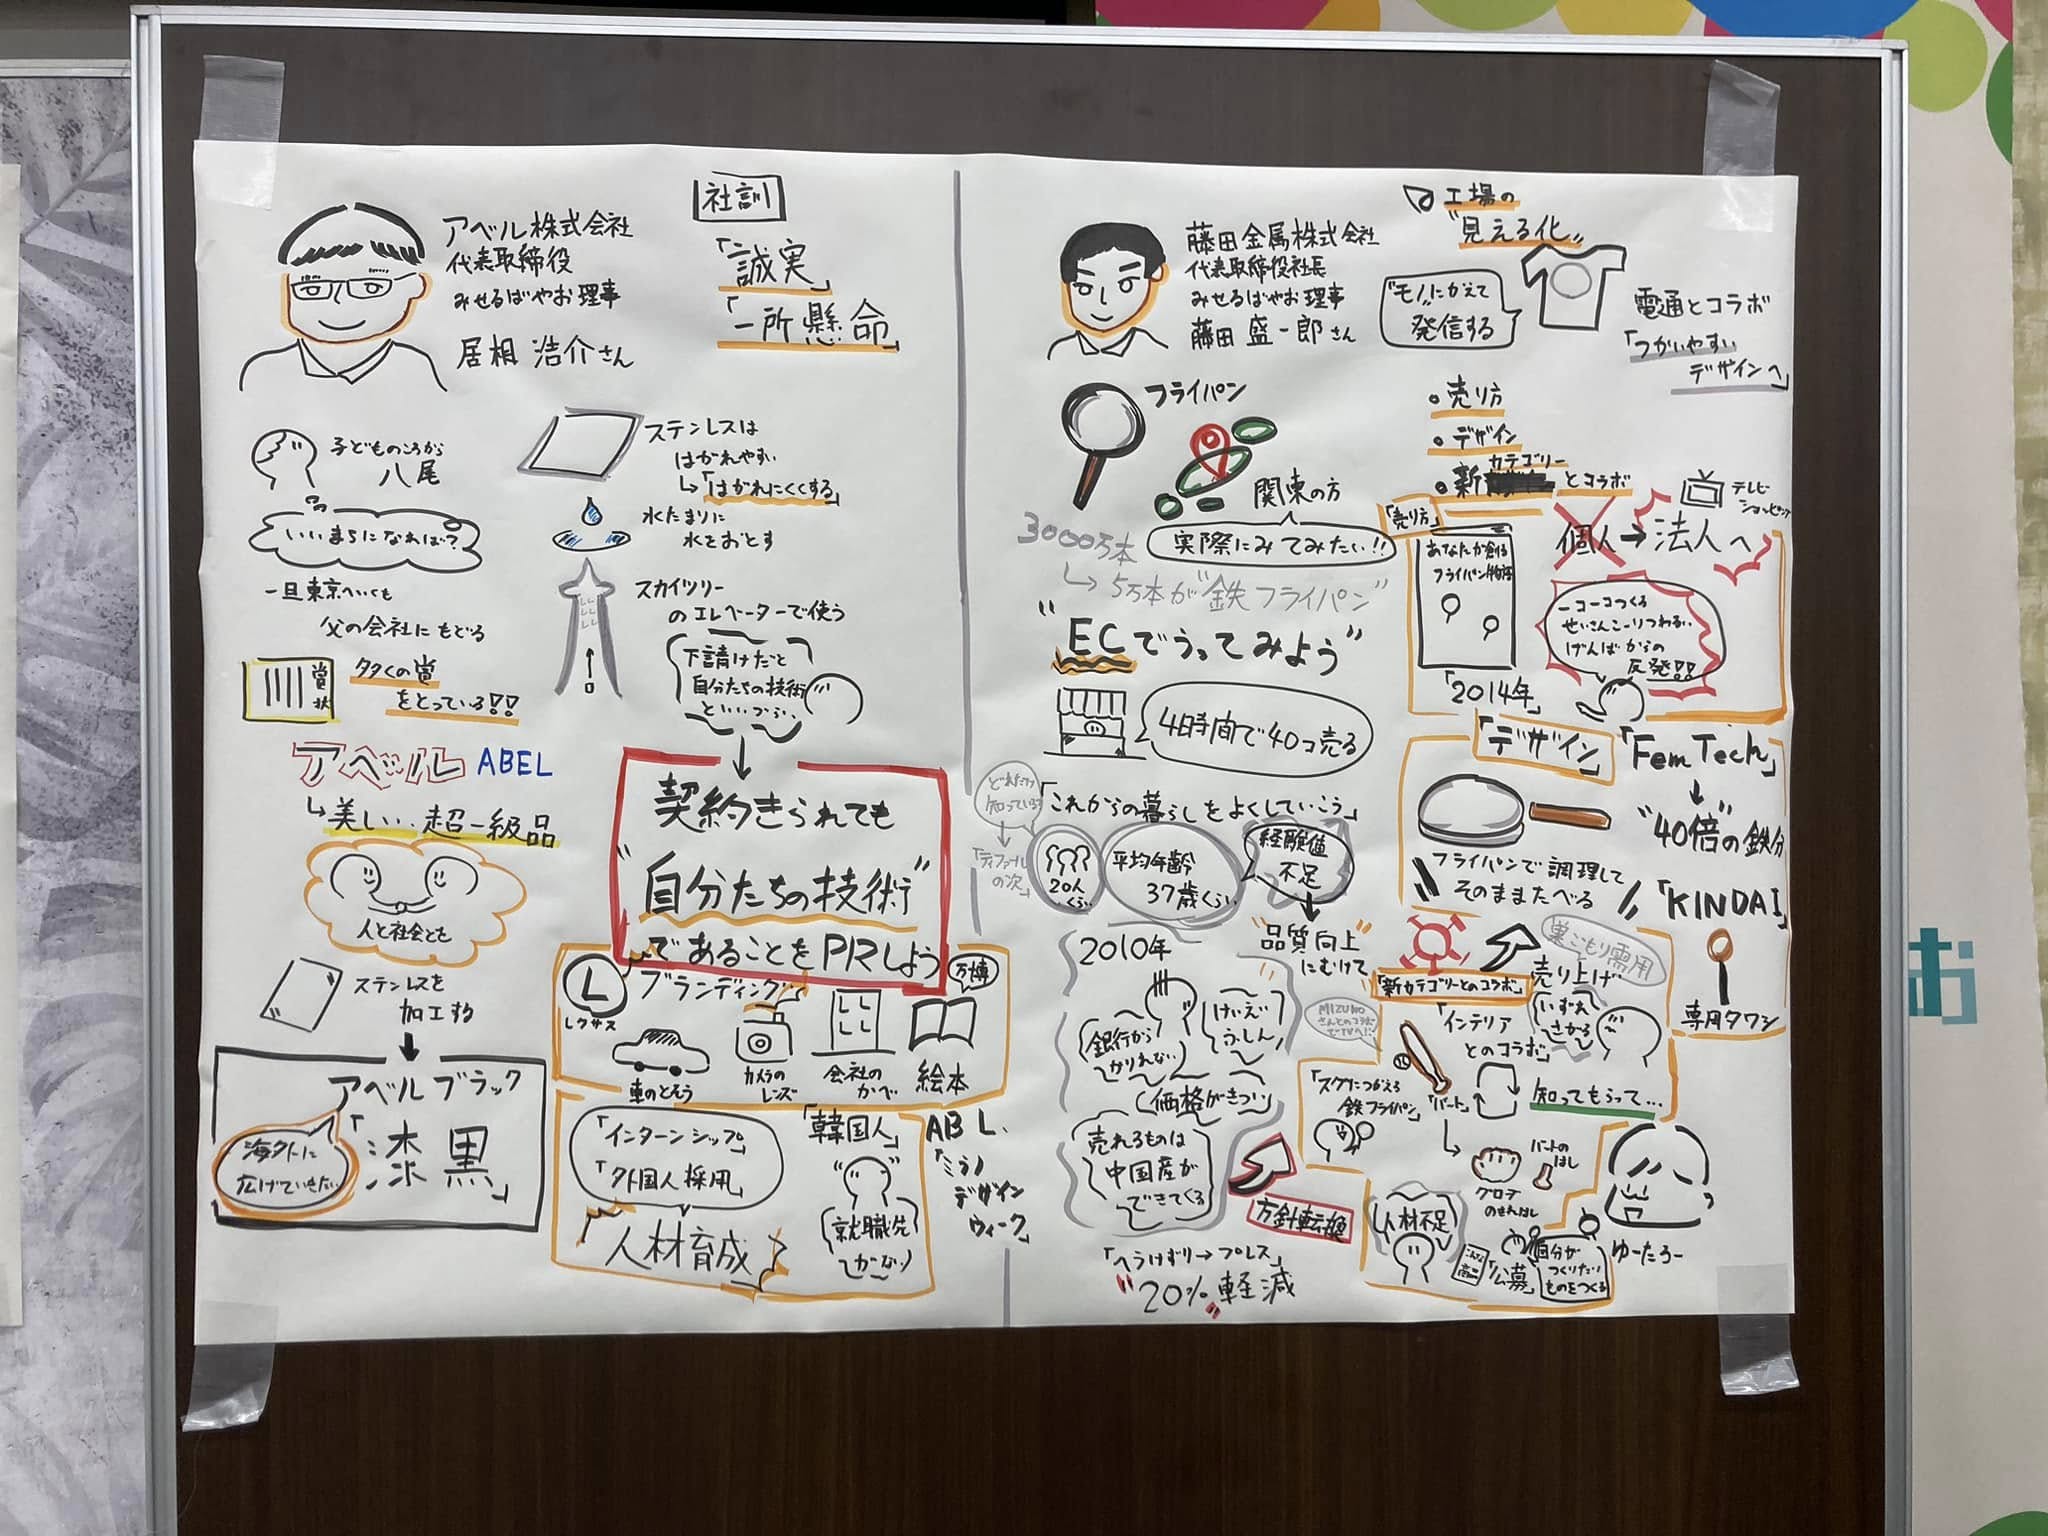 アベル株式会社
代表取締役
みせるばやお理事
居相 浩介さん
社訓
「誠実」
「一所懸命」
子どものころから
八尾
いいまちになれば?
一旦東京へいくも
父の会社にもどる
賞状
多くの賞
をとっている!!
アベル ABEL
美しい.. 超一級品
人と社会とも
ステンレスを
加工する
アベルブラック
「漆黒」
海外に
広げていきたい
ステンレスは
はがれやすい
「はがれにくくする」
水たまりに
水をおとす
スカイツリー
のエレベーターで使う
下請けだと
自分たちの技術
といいづらい..
契約きられても
"自分たちの技術"
であることをPRしよう
ブランディング..
L
レクサス
車のとそう
カメラの
レンズ
会社の
かべ
万博
絵本
「インターンシップ」
「外国人採用」
人材育成
「韓国人」
就職先
がない
ABL.
デザイン
ウィーク」
藤田金属株式会社
代表取締役社長
みせるばやお理事
藤田 盛一郎さん
フライパン
関東の方
実際にみてみたい!!
3000万本
5万本が"鉄フライパン"
"ECでうってみよう"
4時間で40コ売る
どれだけ
知っている?
「ティファール
の次」
「これからの暮らしをよくしていこう」
20人
くらい
平均年齢
37歳くらい
経験値
不足
"品質向上"
にむけて
2010年
銀行から
かりれない
けいえい
ふしん
価格がきつい
売れるものは
中国産が
できてくる
方針転換
「へらしぼり→プレス」
"20%"軽減
工場の
"見える化"
"モノ"にかえて
発信する
電通とコラボ
「つかいやすい
デザインへ」
・売り方
・デザイン
・新カテゴリーとコラボ
「売り方」
あなたが創る
フライパン物語
「2014年」
個人→法人へ
テレビ
ショッピング
一コ一コつくる
せいさんこーりつわるい
げんばからの
反発!!
「デザイン」
フライパンで調理して
そのままたべる
「Fem Tech」
"40倍"の鉄分
「KINDAI」
専用タワシ
「新カテゴリーとのコラボ」
売り上げ
巣ごもり需用
いずれ
さがる
MIZUNO
さんとのコラボ
でTVへ!!
「インテリア
とのコラボ」
「スグにつかえる
鉄フライパン」
「バート」
知ってもらって...
グローブ
のせんはし
バートの
はし
人材不足
「公募」
自分が
つくりたい
ものをつくる
ゆーたろー
お